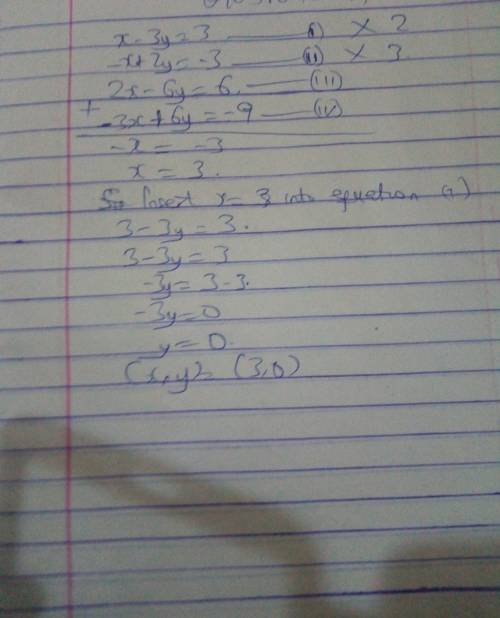 x - 3y = 3 ——— (i) × 2
-x + 2y = -3 ——— (ii) × 3
2x - 6y = 6. ——— (iii)
+ -3x + 6y = -9 ——— (iv)
-x = -3
x = 3.
Insert x = 3 into equation (i)
3 - 3y = 3.
3 - 3y = 3
-3y = 3 - 3.
-3y = 0
y = 0.
(x, y) = (3, 0)